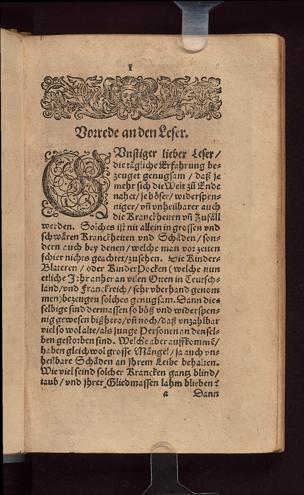 1
Vorrede an den Leser.
GVnstiger lieber Leser /
die tägliche Erfahrung be-
zeuget genugsam / daß je
mehr sich die Welt zů Ende
nahet / je böser / widerspen-
niger / vñ vnheilbarer auch
die Kranckheiten vñ Zufäll
werden. Solches ist nit allein in grossen vnd
schwären Kranckheiten vnd Schäden / son-
dern auch bey denen / welche man vorzeiten
schier nichs geachtet / zusehen. Die Kinder-
Blateren / oder KinderPocken (welche nun
etliche Jahr anher an vilen Orten in Teutsch-
land / vnd Franckreich / sehr vberhand genom
men) bezeugen solches genugsam. Dann die-
selbige sind dermassen so böß vnd widerspen-
nig gewesen bißhero / vñ noch / daß vnzahlbar
viel so wol alte / als junge Personen an densel-
ben gestorben sind. Welche aber auffkommē /
haben gleichwol grosse Mängel / ja auch vn-
heilbare Schäden an jhrem Leibe behalten.
Wie viel seind solcher Krancken gantz blind /
taub / vnd jhrer Gliedmassen lahm blieben?
a Dann